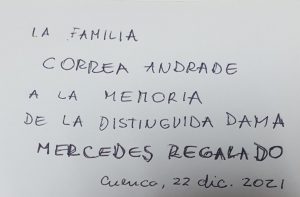 LA FAMILIA
CORREA ANDRADE
A LA MEMORIA
DE LA DISTINGUIDA DAMA
MERCEDES REGALADO
Cuenca, 22 dic. 2021